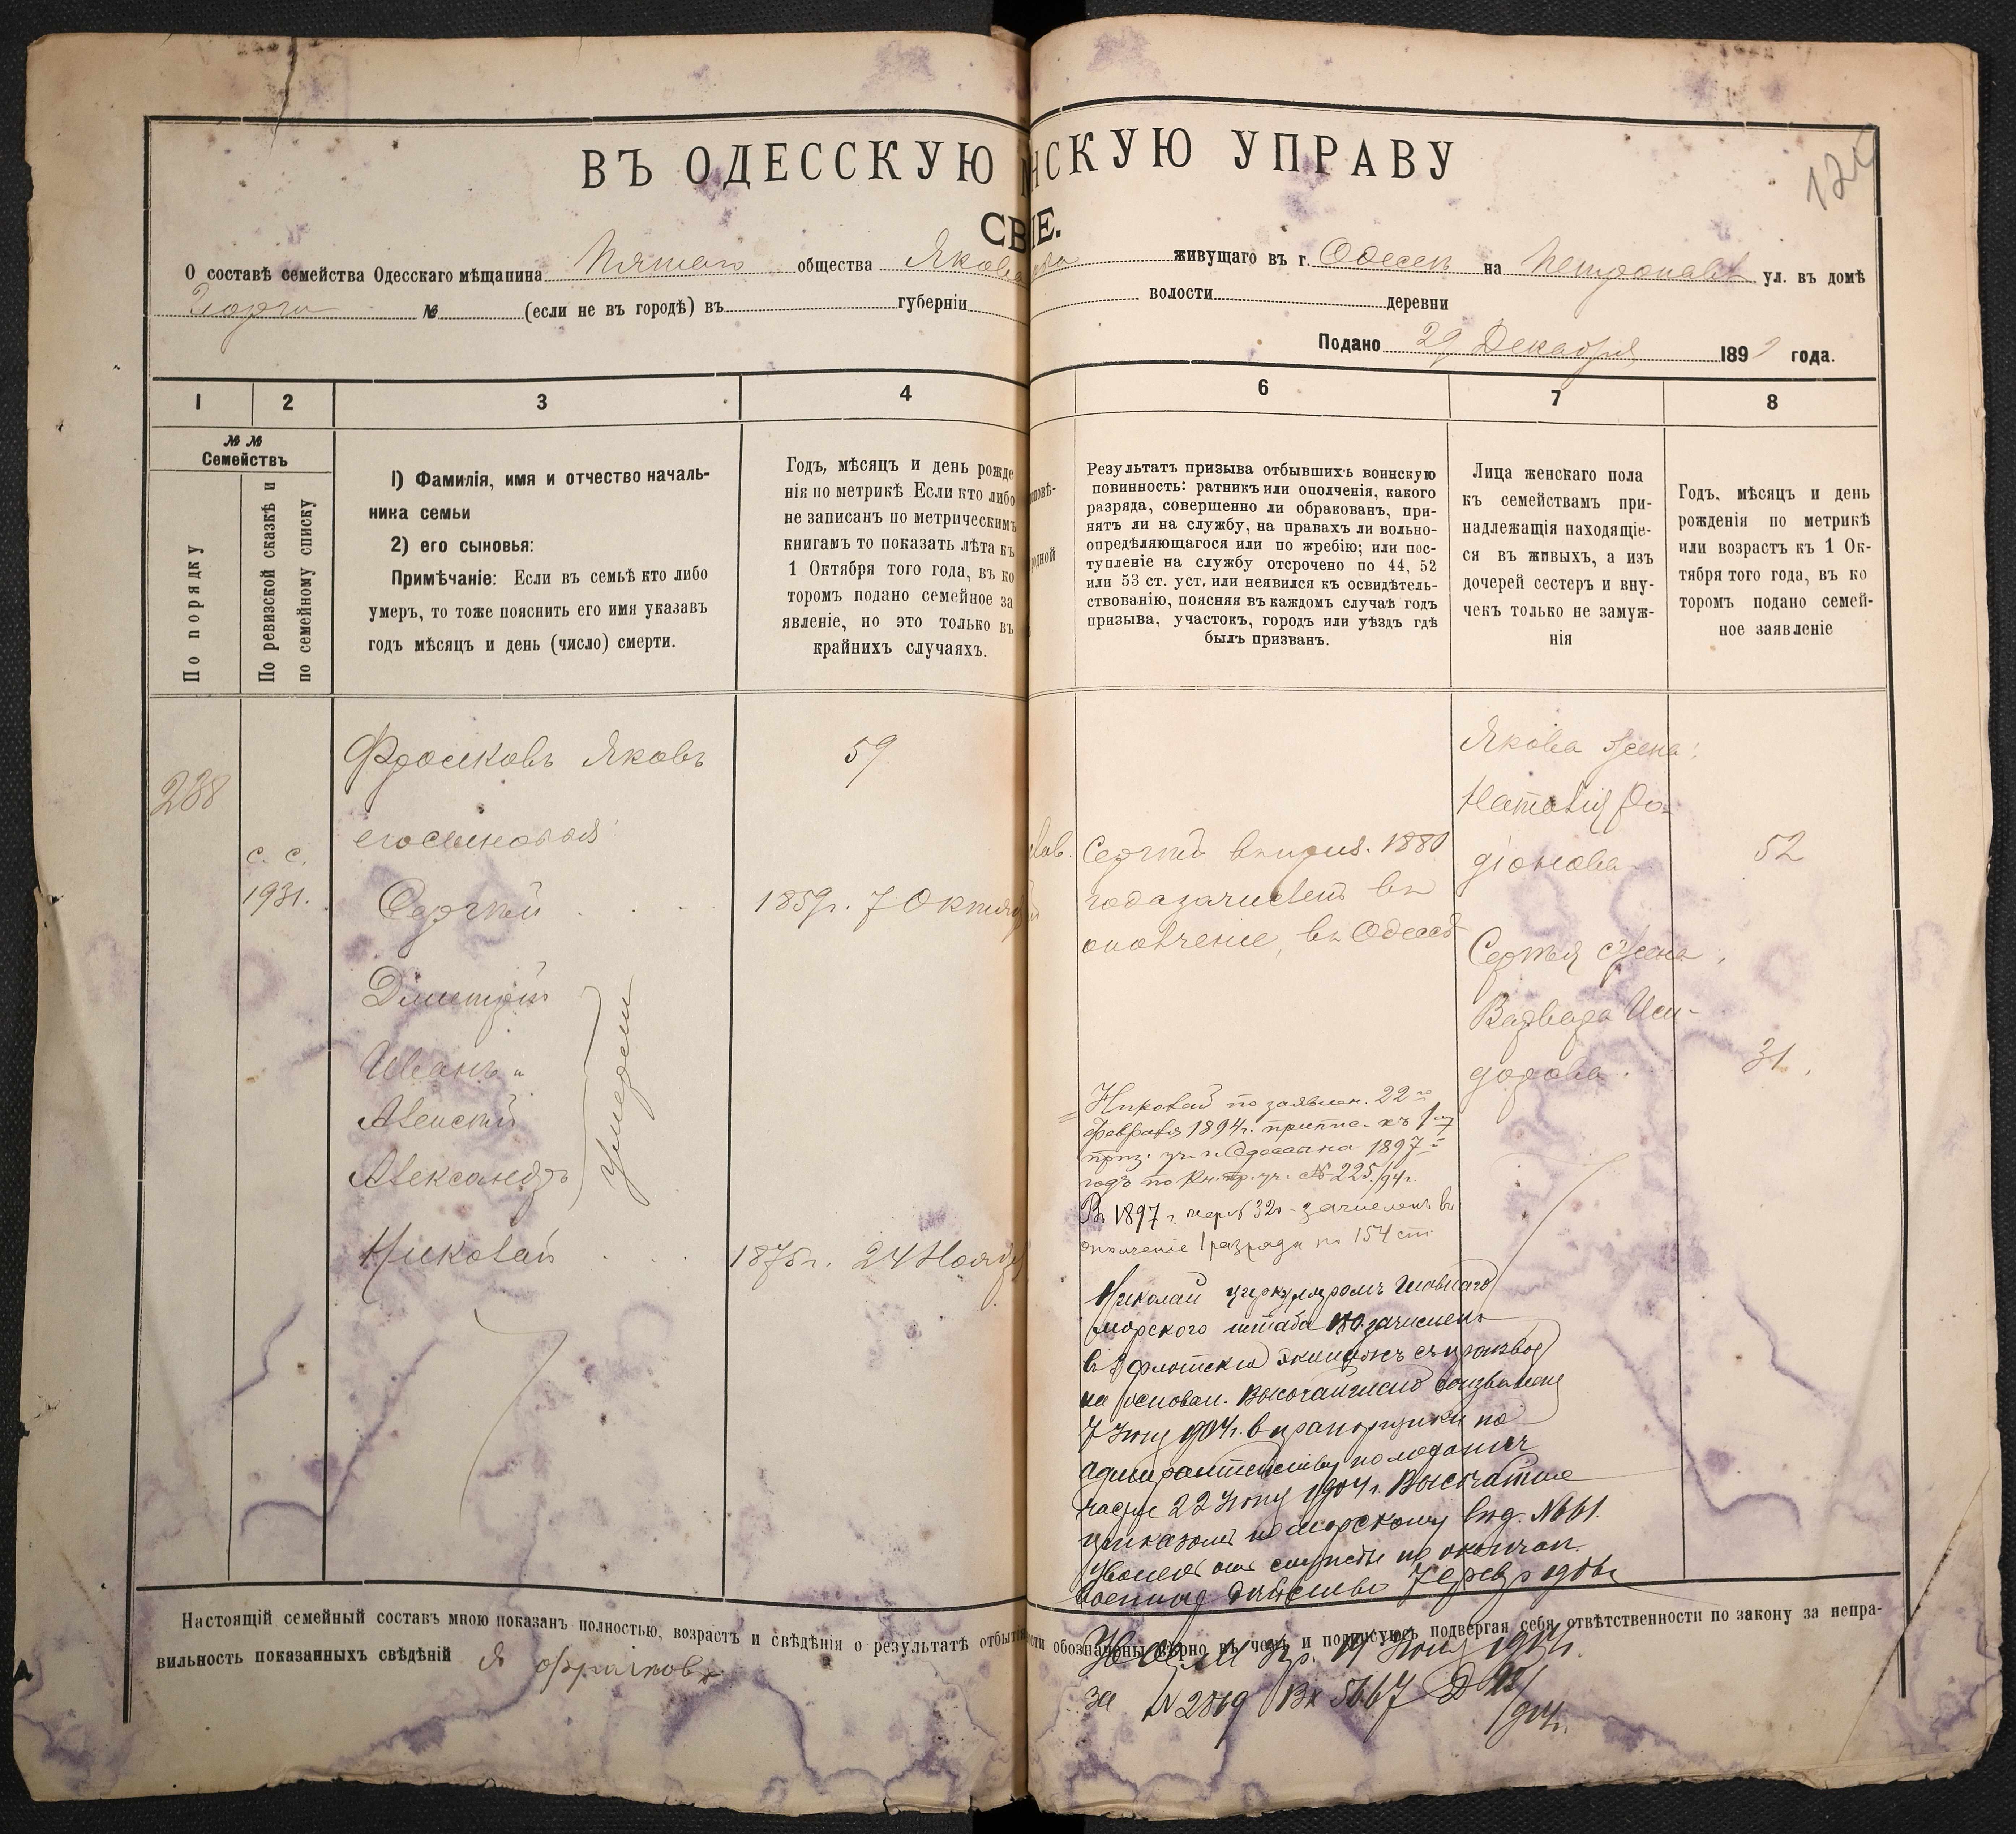 ВЪ ОДЕССКУЮ НСКУЮ УПРАВУ
СВ IE.
О составѣ семейства Одесскаго мѣщанина Пятаго общества Якова живущаго въ г. Одессѣ на ул. въ домѣ
№ (если не въ городѣ) въ губерніи волости деревни
Подано 29 Декабря 189 года.
1 2 3 4 6 7 8
№ №
Семействъ
По порядку
По ревизской сказкѣ и
по семейному списку
1) Фамилія, имя и отчество началь-
ника семьи
2) его сыновья:
Примѣчаніе: Если въ семьѣ кто либо
умеръ, то тоже пояснить его имя указавъ
годъ мѣсяцъ и день (число) смерти.
Годъ, мѣсяцъ и день рожде
нія по метрикѣ Если кто либо
не записанъ по метрическимъ
книгамъ то показать лѣта къ
1 Октября того года, въ ко
торомъ подано семейное за
явленіе, но это только въ
крайнихъ случаяхъ.
Результатъ призыва отбывшихъ воинскую
повинность: ратникъ или ополченія, какого
разряда, совершенно ли обракованъ, при-
нятъ ли на службу, на правахъ ли вольно-
опредѣляющагося или по жребію; или пос-
тупленіе на службу отсрочено по 44, 52
или 53 ст. уст, или неявился къ освидѣтель-
ствованію, поясняя въ каждомъ случаѣ годъ
призыва, участокъ, городъ или уѣздъ гдѣ
былъ призванъ.
Лица женскаго пола
къ семействамъ при-
надлежащія находящіе-
ся въ живыхъ, а изъ
дочерей сестеръ и вну-
чекъ только не замуж-
нія
Годъ, мѣсяцъ и день
рожденія по метрикѣ
или возрастъ къ 1 Ок-
тября того года, въ ко
торомъ подано семей-
ное заявленіе
288
с. с.
1931.
Фролковъ Яковъ
его сыновья:
Сергѣй
Дмитрій
Иванъ
Алексѣй
Александръ
Умерли
Николай
59
1859г. 7 Октяб
1875г. 24 Нояб
Сергѣй въ приз. 1880
года зачисленъ въ
ополченіе, въ Одессѣ
Николай по заявлен. 22го
февраля 1894г. припис. къ 1му
приз. уч. г. Одессы на 1897й
годъ по Кн. пр. уч. № 225/94г.
Въ 1897 г. жер № 320 зачисленъ въ
ополченіе 1 разряда по 154 ст.
Николай циркуляромъ Главнаго
морского штаба зачисленъ
въ флотскій экипажъ съ производ
на основан. Высочайшаго
7 Іюня 1904г. въ прапорщики по
Адмиралтейству
22 Іюня 1904г. Высочайш
приказомъ по морскому вѣд. № 661.
уволенъ отъ службы по окончан.
1904г.
за № 2819 Вх 5667
Якова жена:
Наталія Ро-
діонова
Сергѣя жена
Варвара Иси-
дорова.
52
31.
Настоящій семейный составъ мною показанъ полностью, возрастъ и свѣдѣнія о результатѣ отбы сти обозначены вѣрно въ чемъ и подписуюсь подвергая себя отвѣтственности по закону за непра-
вильность показанныхъ свѣдѣній Я Фролковъ